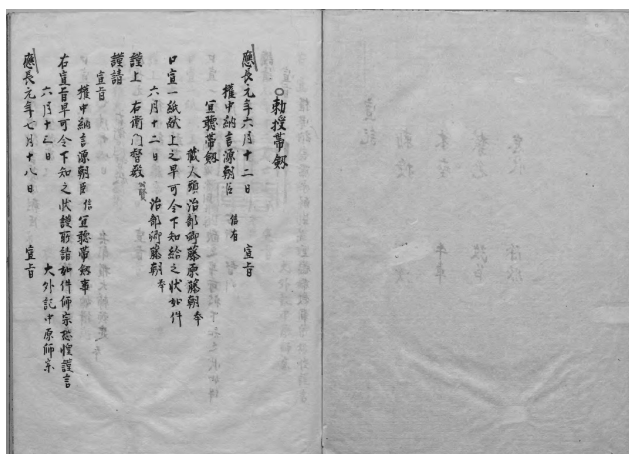 ○勅授帯劔
應長元年六月十二日 宣旨
權中納言源朝臣 信有
宜聽帯劔
藏人頭治部卿藤原藤朝 奉
口宣一紙献上之早可令下知給之状如件
六月十二日 治部卿藤朝奉
謹上 右衛門督殿
謹請
宣旨
權中納言源朝臣 信 宜聽帯劔事
右宣旨早可令下知之状謹所請如件師宗恐惶謹言
六月十二日 大外記中原師宗
應長元年七月十八日 宣旨